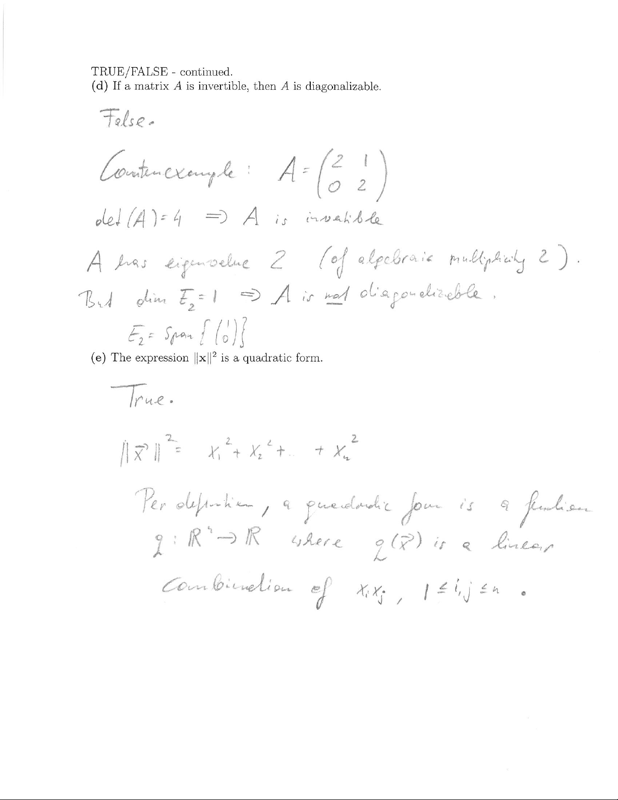 TRUE/FALSE - continued.
(d) If a matrix A is invertible, then A is diagonalizable.
False.
Counterexample : A = (2 1
0 2)
det(A) = 4 ⇒ A is invertible
A has eigenvalue 2 (of algebraic multiplicity 2).
But dim E₂ = 1 ⇒ A is not diagonalizable.
E₂ = Span {(1 0)}
(e) The expression ‖x‖² is a quadratic form.
True.
‖x⃗‖² = x₁² + x₂² + … + xₙ²
Per definition, a quadratic form is a function
q : ℝⁿ → ℝ where q(x⃗) is a linear
combination of xᵢxⱼ, 1 ≤ i,j ≤ n.